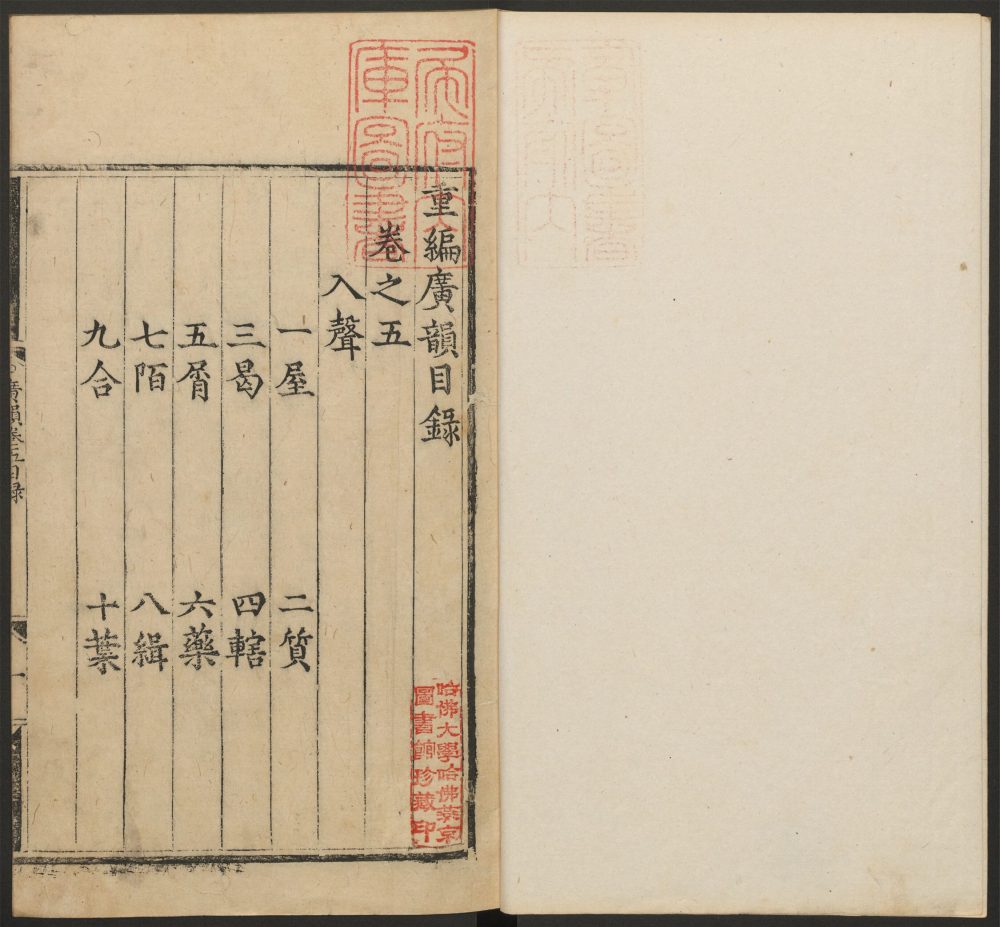 重編廣韻目錄
卷之五
入聲
一屋 二質
三曷 四轄
五屑 六藥
七陌 八緝
九合 十葉
廣韻卷五目録
一
哈佛大學哈佛燕京
圖書館珍藏印